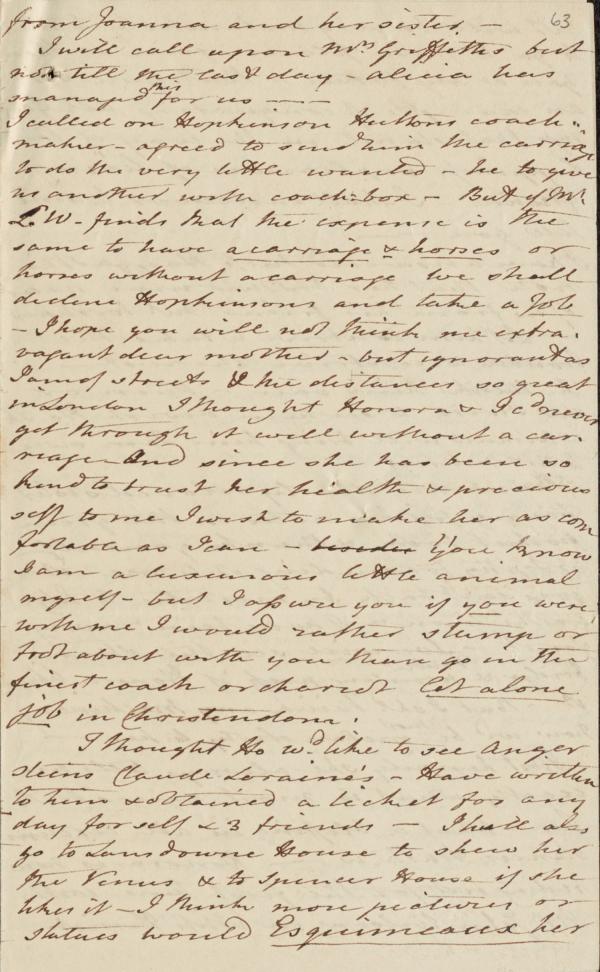 63
from Joanna and her sister. —
I will call upon Mrs Griffeths but
not till the last day — alicia has
managed this for us — —
I called on Hopkinson Huttons coach
maker — agreed to send him the carriage
to do the very little wanted — he to give
us another with coach-box — But if Mr
L. W. finds that the expense is the
same to have a carriage & horses or
horses without a carriage we shall
decline Hopkinsons and take a Job
— I hope you will not think me extra-
vagant dear mother — but ignorant as
I am of streets & the distances so great
in London I thought Honora & I cd never
get through it well without a car-
riage — And since she has been so
kind to trust her health & precious
self to me I wish to make her as com
fortable as I can — besides You know
I am a luxurious little animal
myself — but I assure you if you were
with me I would rather stump or
trot about with you than go in the
finest coach or chariot let alone
job in Christendom.
I thought Ho wd like to see Anger
steens Claude Loraine's — Have written
to him & obtained a ticket for any
day for self & 3 friends — I shall also
go to Lansdowne House to shew her
the Venus & to Spencer House if she
likes it — I think more pictures or
statues would Esquimeaux her